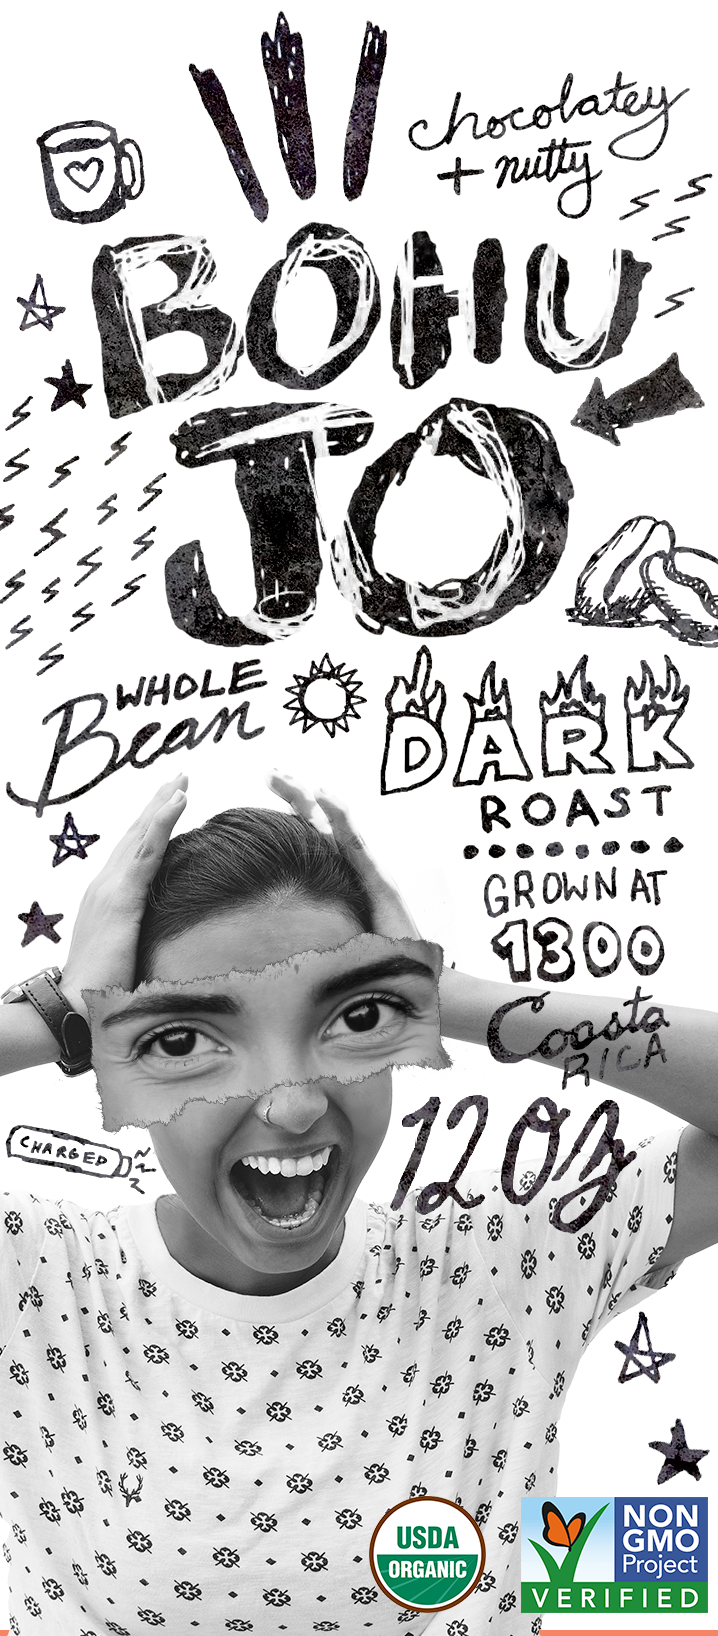 chocolatey
+ nutty
BOHU
JO
WHOLE
Bean
DARK
ROAST
GROWN AT
1300
Coasta
RICA
12 oz
CHARGED
USDA
ORGANIC
NON
GMO
Project
VERIFIED